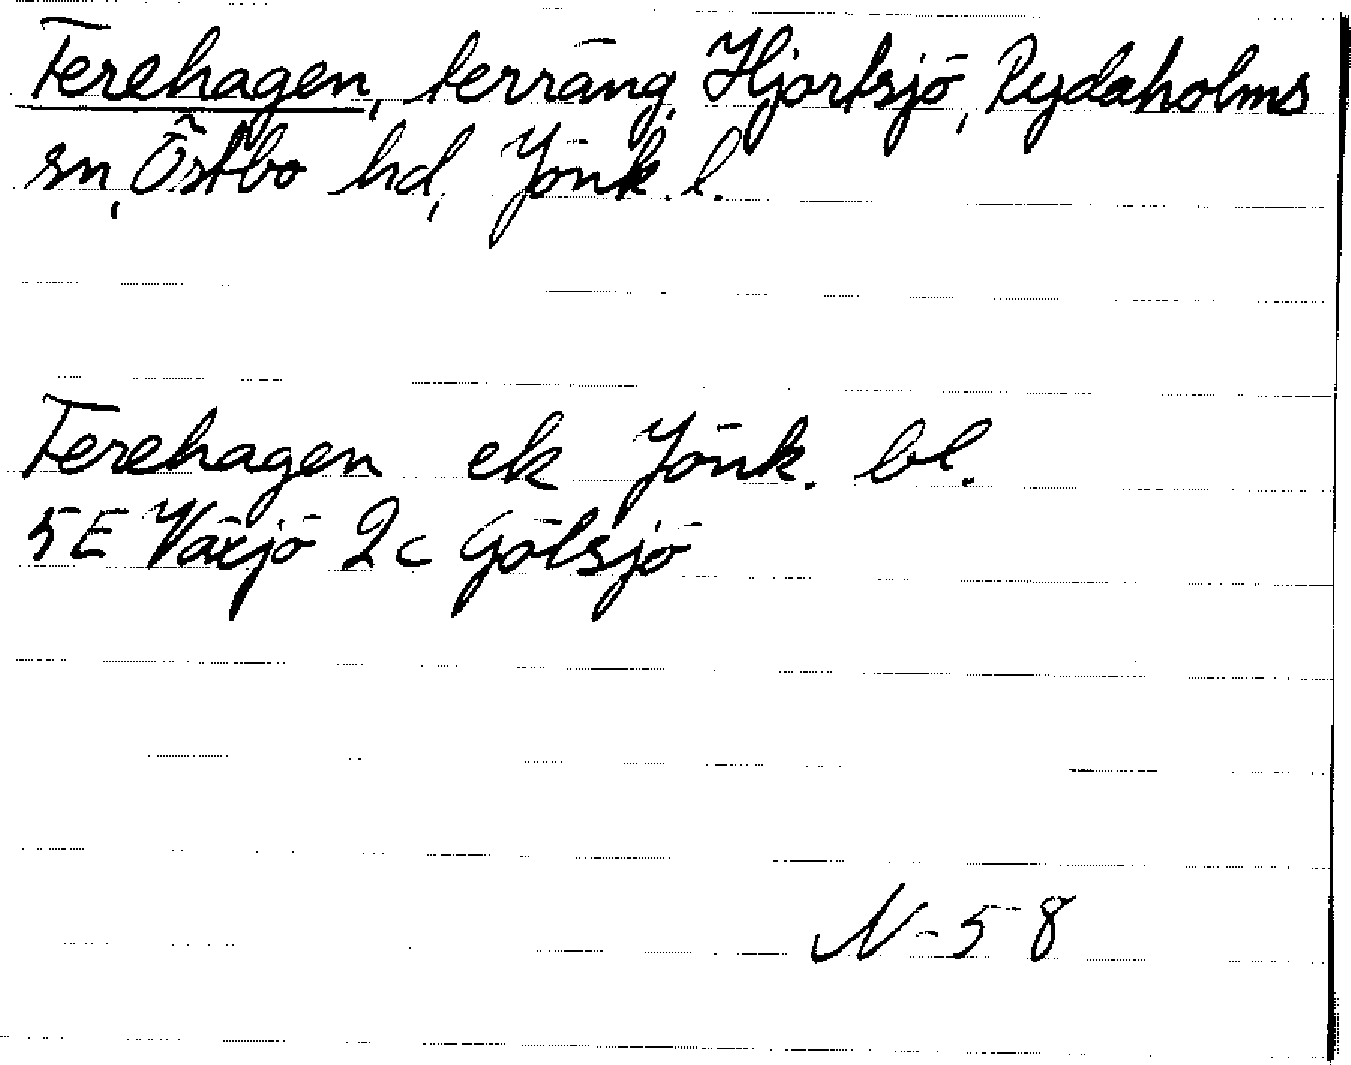 Terehagen, terräng, Hjortsjö, Rydaholms
sn, Östbo hd, Jönk. l.
Terehagen ek Jönk. bl.
5E Växjö 2c Gölsjö
N-58